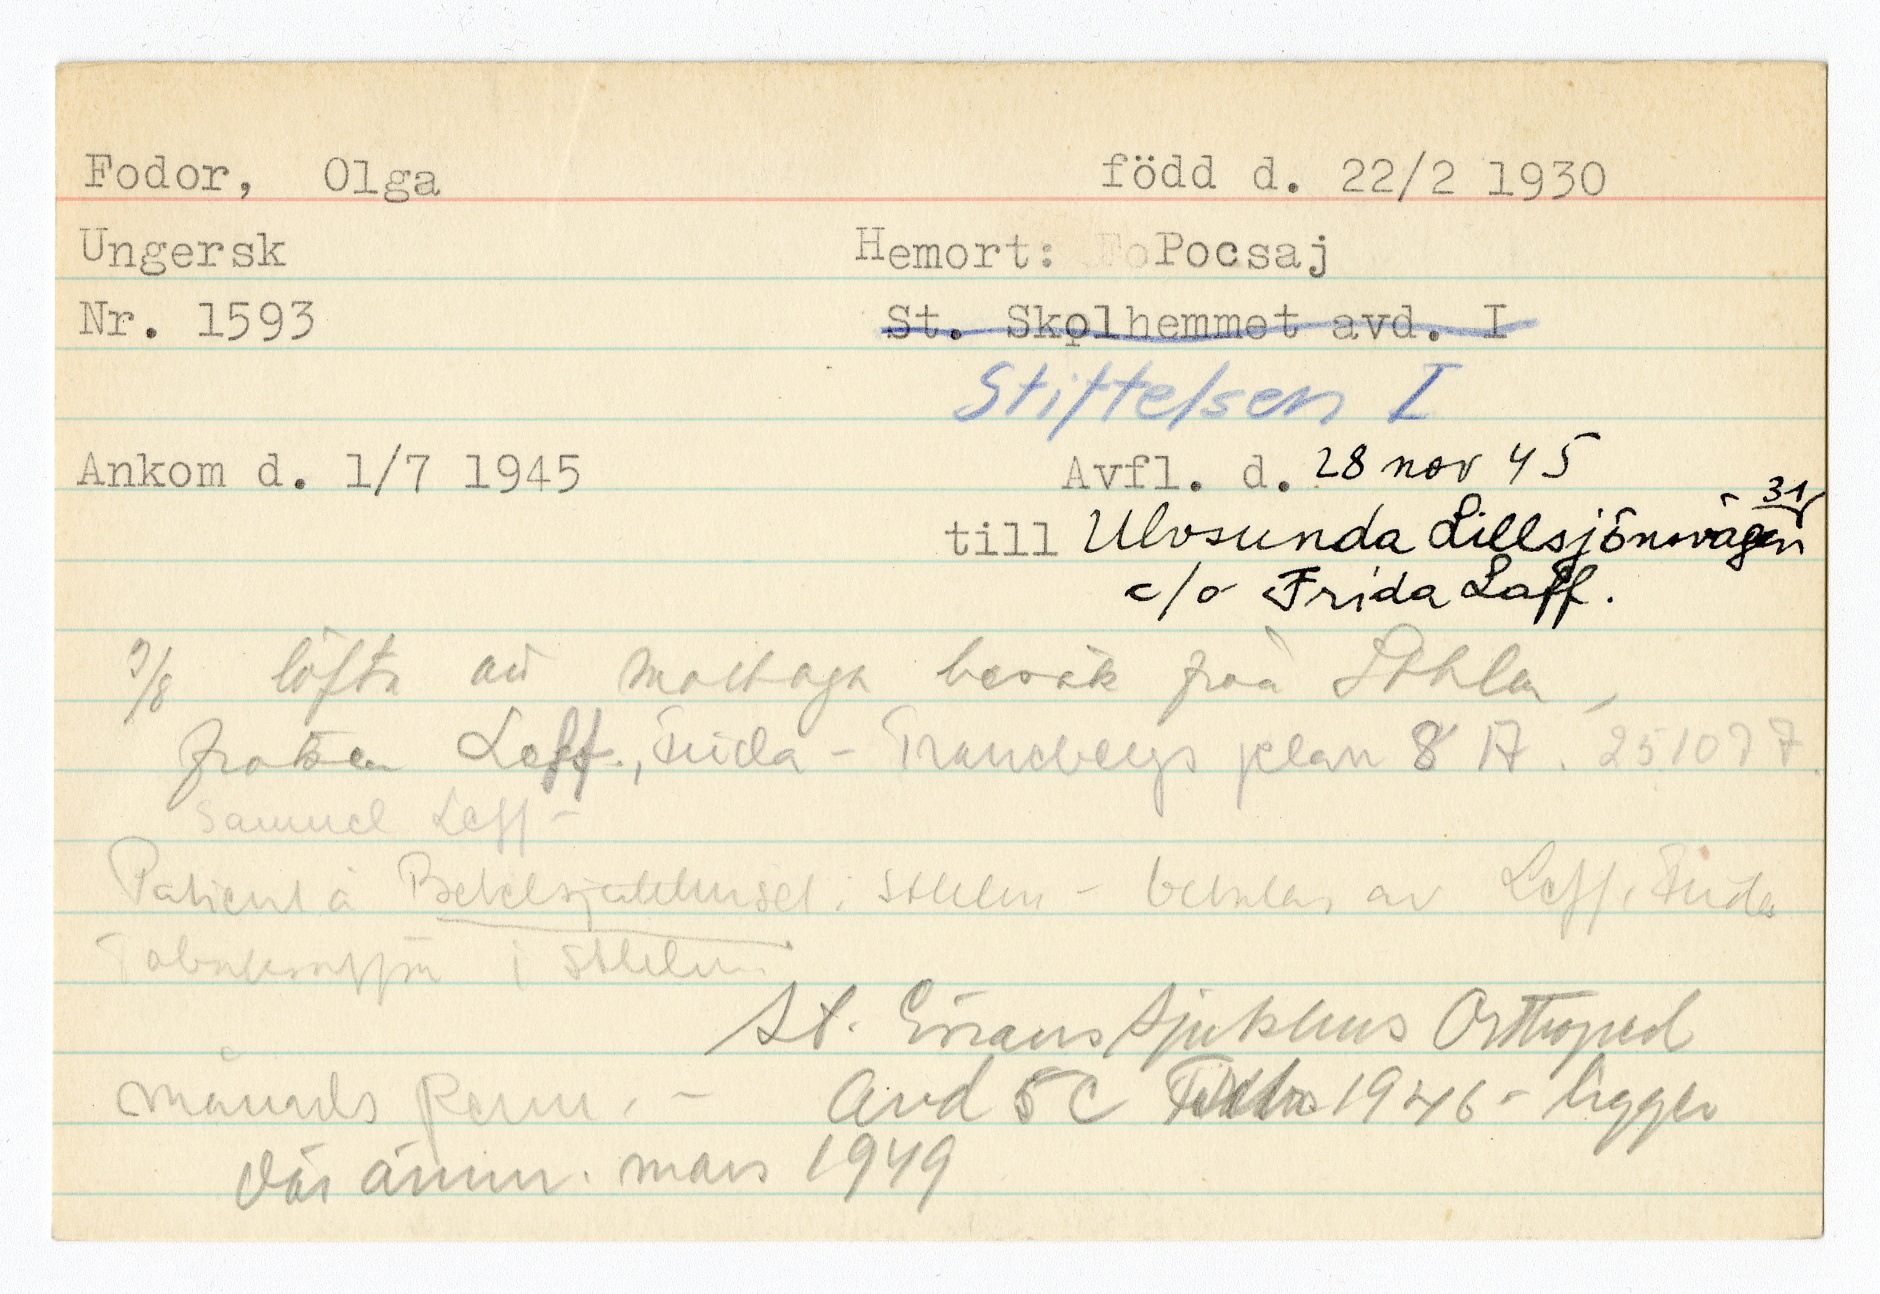 Fodor, Olga född d. 22/2 1930
Ungersk Hemort: Pocsaj
Nr. 1593 St. Skolhemmet avd. I
Stiftelsen I
Ankom d. 1/7 1945 Avfl. d. 28 nov 45
till Ulvsunda Lillsjönsvägen 31
c/o Frida Laff.
9/8 löfte att mottaga besök från Sthlm,
fröken Leff, Frida - Tranebergs plan 8 A. 251097.
Samuel Leff -
Patient å Betelsjukhuset i Sthlm - betalas av Leff, Frida
i Sthlm.
St. Görans Sjukhus Ortoped
månads perm. - Avd 5 C 1946 - ligger
där ännu. mars 1949